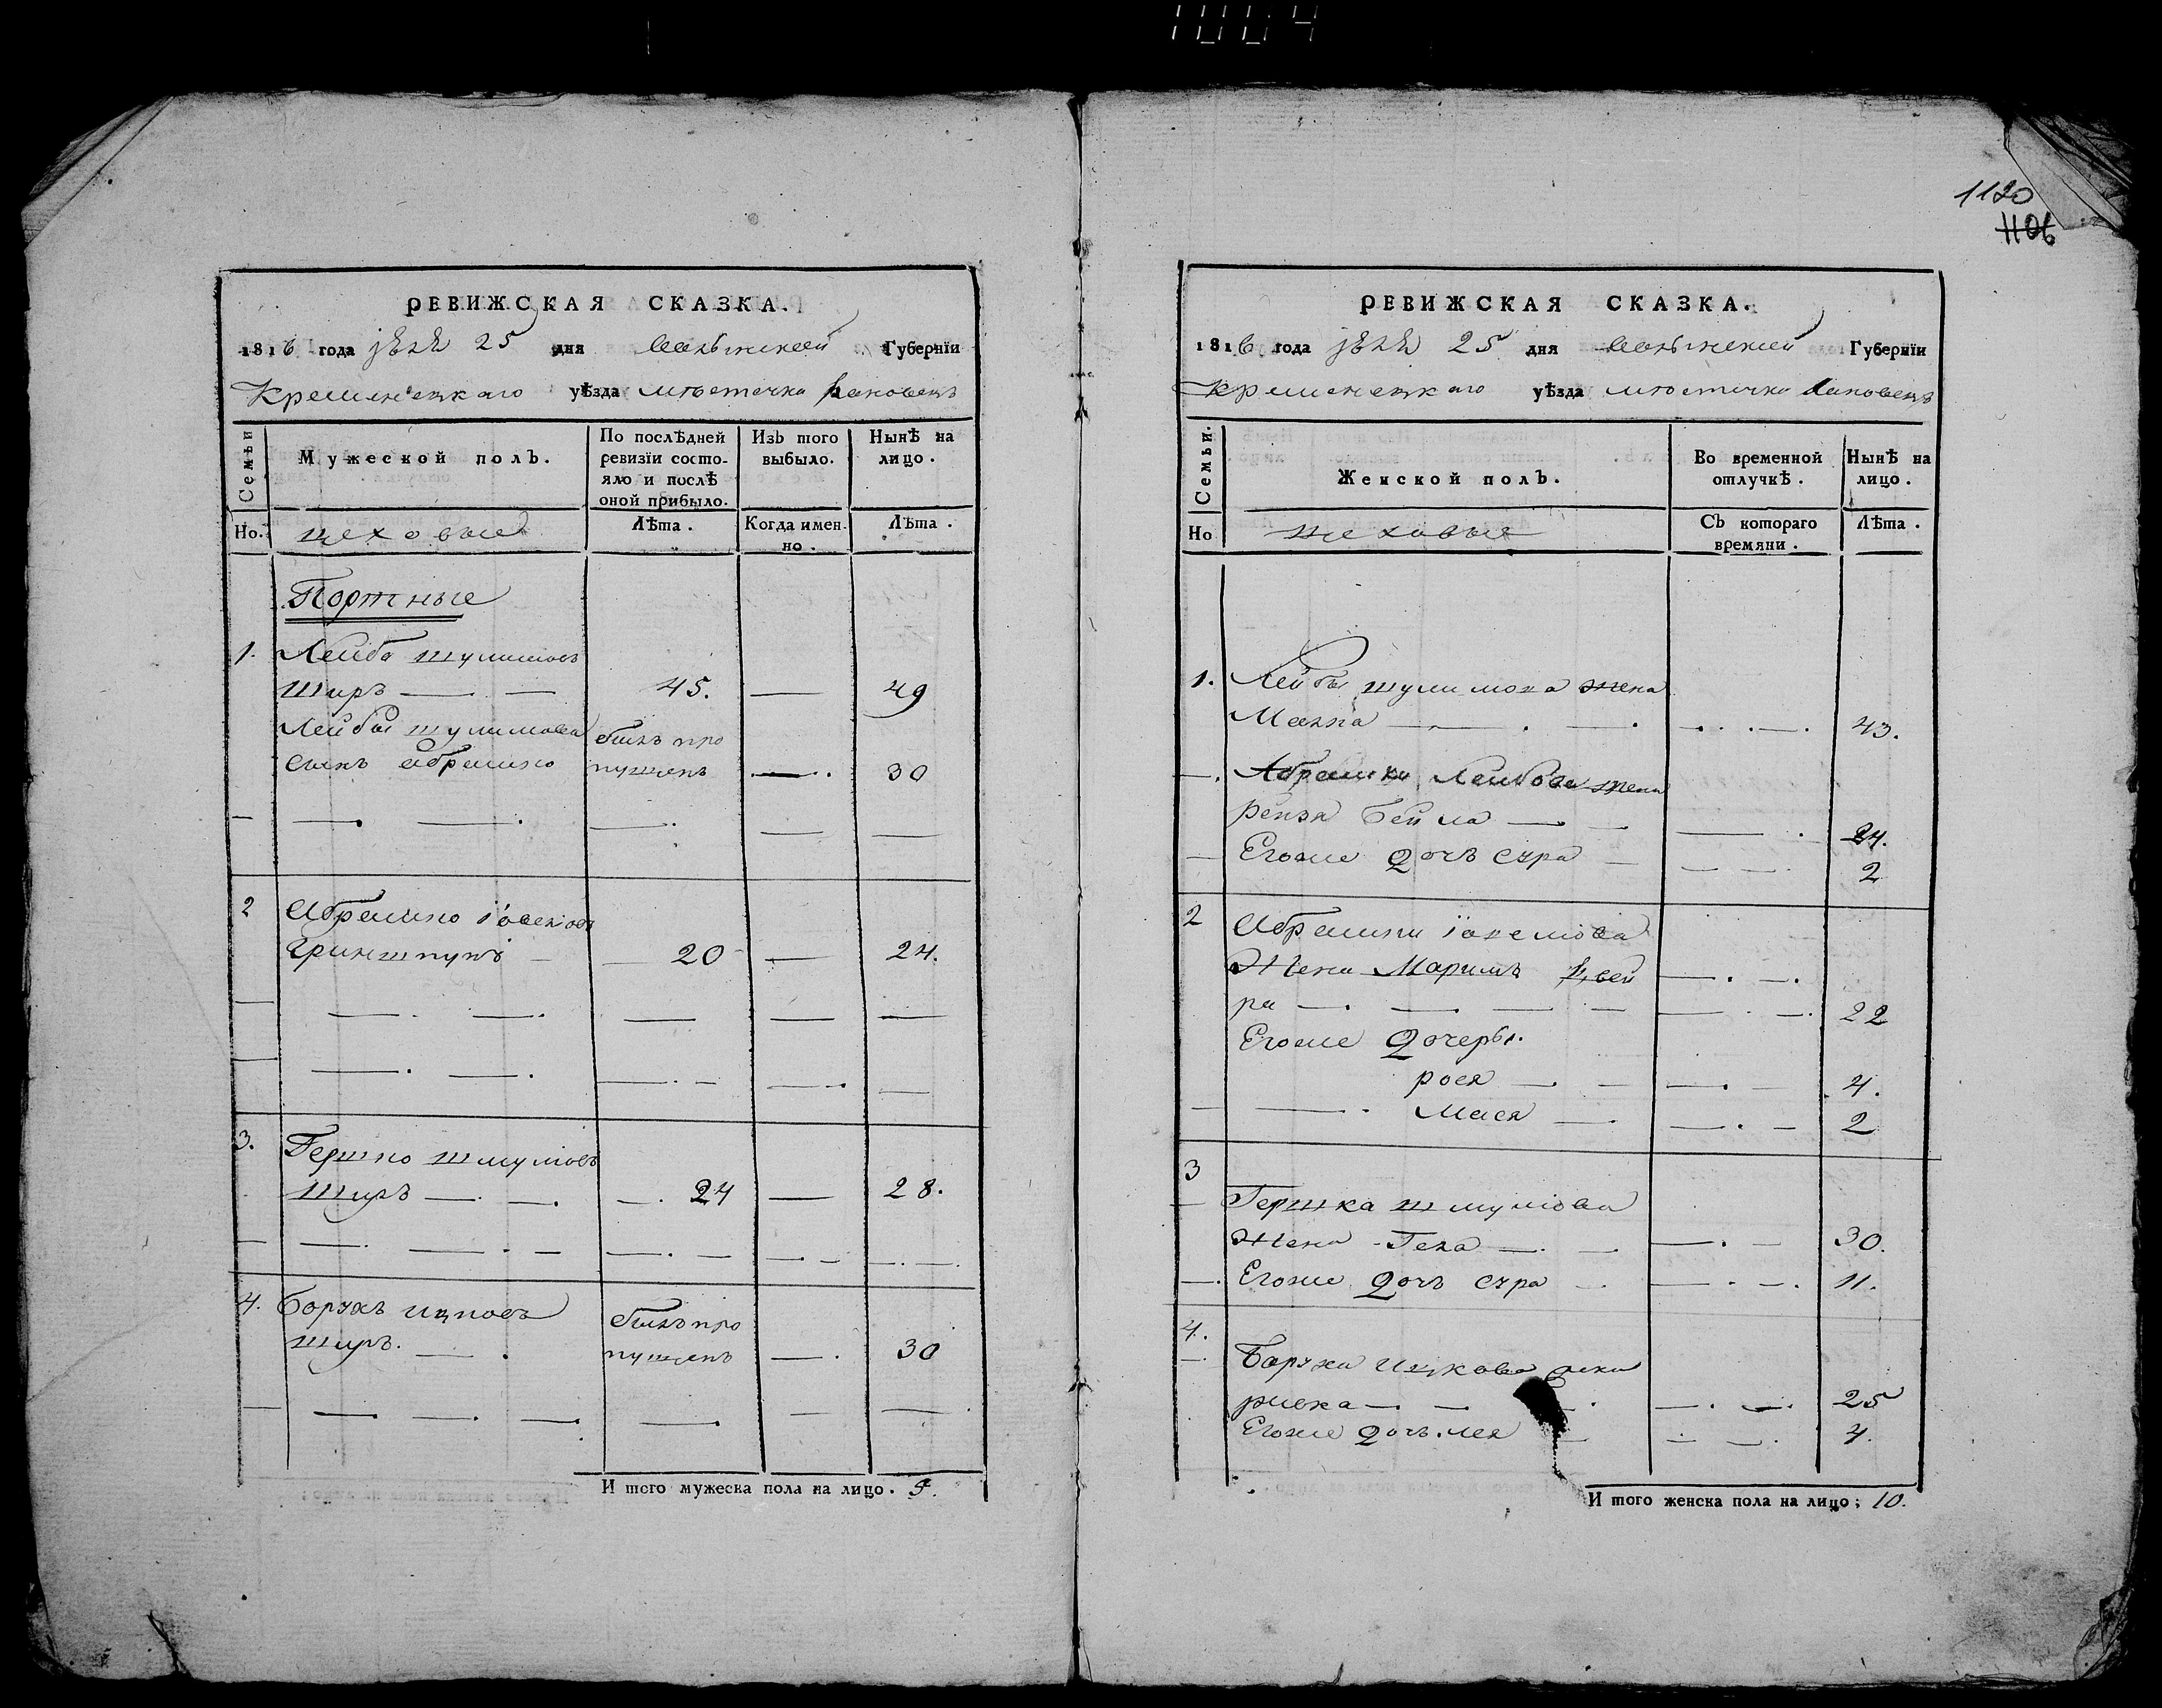 1004
1120
1106
РЕВИЖСКАЯ СКАЗКА.
1816 года 25 дня Волынской Губернїи
Кременецкаго уѣзда мѣстечка
Семьи
Мужеской полъ.
По послѣдней ревизїи состо-
яло и послѣ
оной прибыло.
Изъ того
выбыло.
Нынѣ на
лицо.
Но.
цеховые
Лѣта.
Когда имен-
но.
Лѣта.
Портные
1. Лейба шулимовъ
Ширъ — — 45. — 49
Лейбы шулимова былъ про
Сынъ Абрамко пущенъ —. 30
2 Абрамко
Гриншпунъ — 20 — 24.
3. Гершко шмулювъ
Ширъ —. —. —. 24 — 28.
4. Борухъ ицковъ былъ про
Ширъ. —. пущенъ —. 30
И того мужеска пола на лицо. 5.
РЕВИЖСКАЯ СКАЗКА.
1816 года 25 дня Волынской Губернїи
Кременецкаго уѣзда мѣстечка
Семьи.
Женской полъ.
Во временной
отлучкѣ.
Нынѣ на
лицо.
Но
цеховыя
Съ котораго
времяни.
Лѣта.
1. Лейбы шулимова жена
Малка — 43.
Абрамки Лейбова жена
Бейла — — 24.
Егоже дочь сура — 2
2 Абрамки
Жена Маримъ Двей
ра — 22
Егоже дочеры.
рося — 4.
Мася — 2
3
Гершка шмулюва
Жена Геля — 30.
Егоже дочь сура — 11.
4.
Боруха ицкова жена
ривка — 25
Егоже дочь лея — 4.
И того женска пола на лицо; 10.